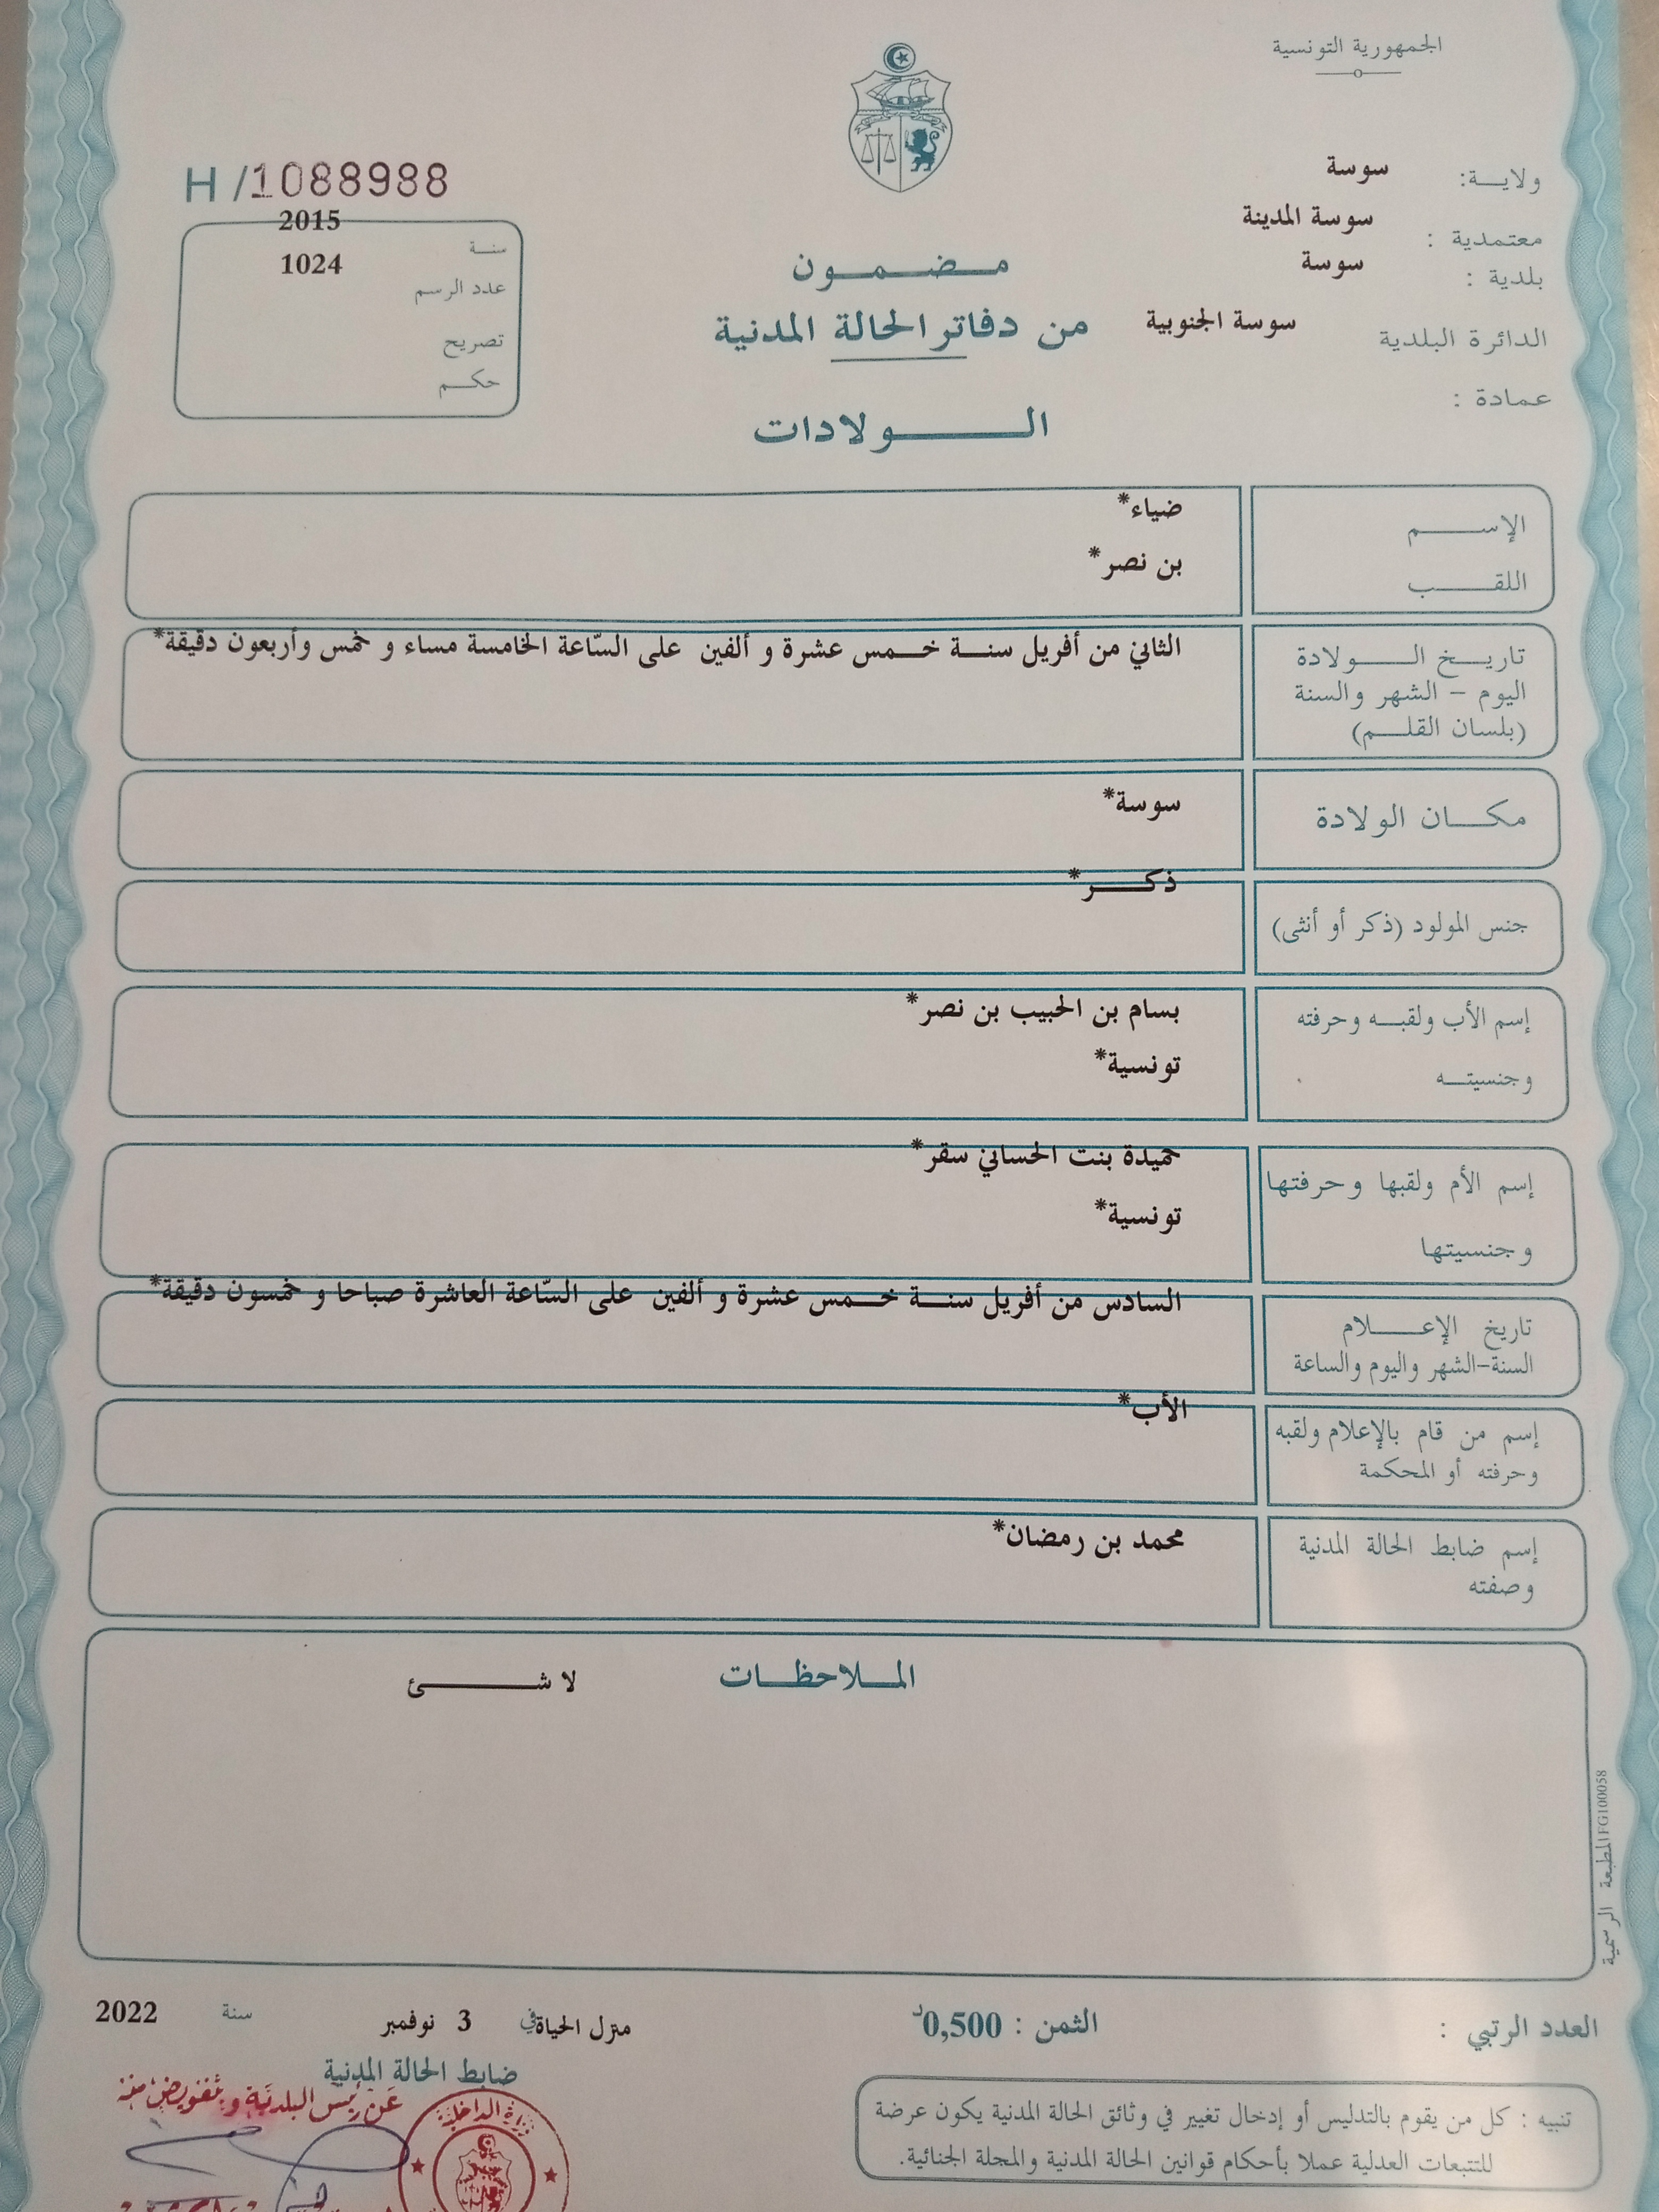 الجمهورية التونسية
ولاية: سوسة
معتمدية : سوسة المدينة
بلدية : سوسة
الدائرة البلدية سوسة الجنوبية
عمادة :
H /1088988
سنة 2015
عدد الرسم 1024
تصريح
حكم
مضمون
من دفاتر الحالة المدنية
الولادات
الإسم ضياء*
اللقب بن نصر*
تاريخ الولادة
اليوم - الشهر والسنة
(بلسان القلم)
الثاني من أفريل سنة خمس عشرة و ألفين على السّاعة الخامسة مساء و خمس وأربعون دقيقة*
مكان الولادة سوسة*
جنس المولود (ذكر أو أنثى) ذكر*
إسم الأب ولقبه وحرفته
وجنسيته
بسام بن الحبيب بن نصر*
تونسية*
إسم الأم ولقبها وحرفتها
وجنسيتها
حميدة بنت الحساني سقر*
تونسية*
تاريخ الإعلام
السنة-الشهر واليوم والساعة
السادس من أفريل سنة خمس عشرة و ألفين على السّاعة العاشرة صباحا و خمسون دقيقة*
إسم من قام بالإعلام ولقبه
وحرفته أو المحكمة
الأب*
إسم ضابط الحالة المدنية
وصفته
محمد بن رمضان*
الملاحظات لا شئ
المطبعة الرسمية IFG100058
العدد الرتبي :
الثمن : 0,500د
منزل الحياة في 3 نوفمبر سنة 2022
ضابط الحالة المدنية
عن رئيس البلدية وبتفويض منه
وزارة الداخلية
تنبيه : كل من يقوم بالتدليس أو إدخال تغيير في وثائق الحالة المدنية يكون عرضة
للتتبعات العدلية عملا بأحكام قوانين الحالة المدنية والمجلة الجنائية.